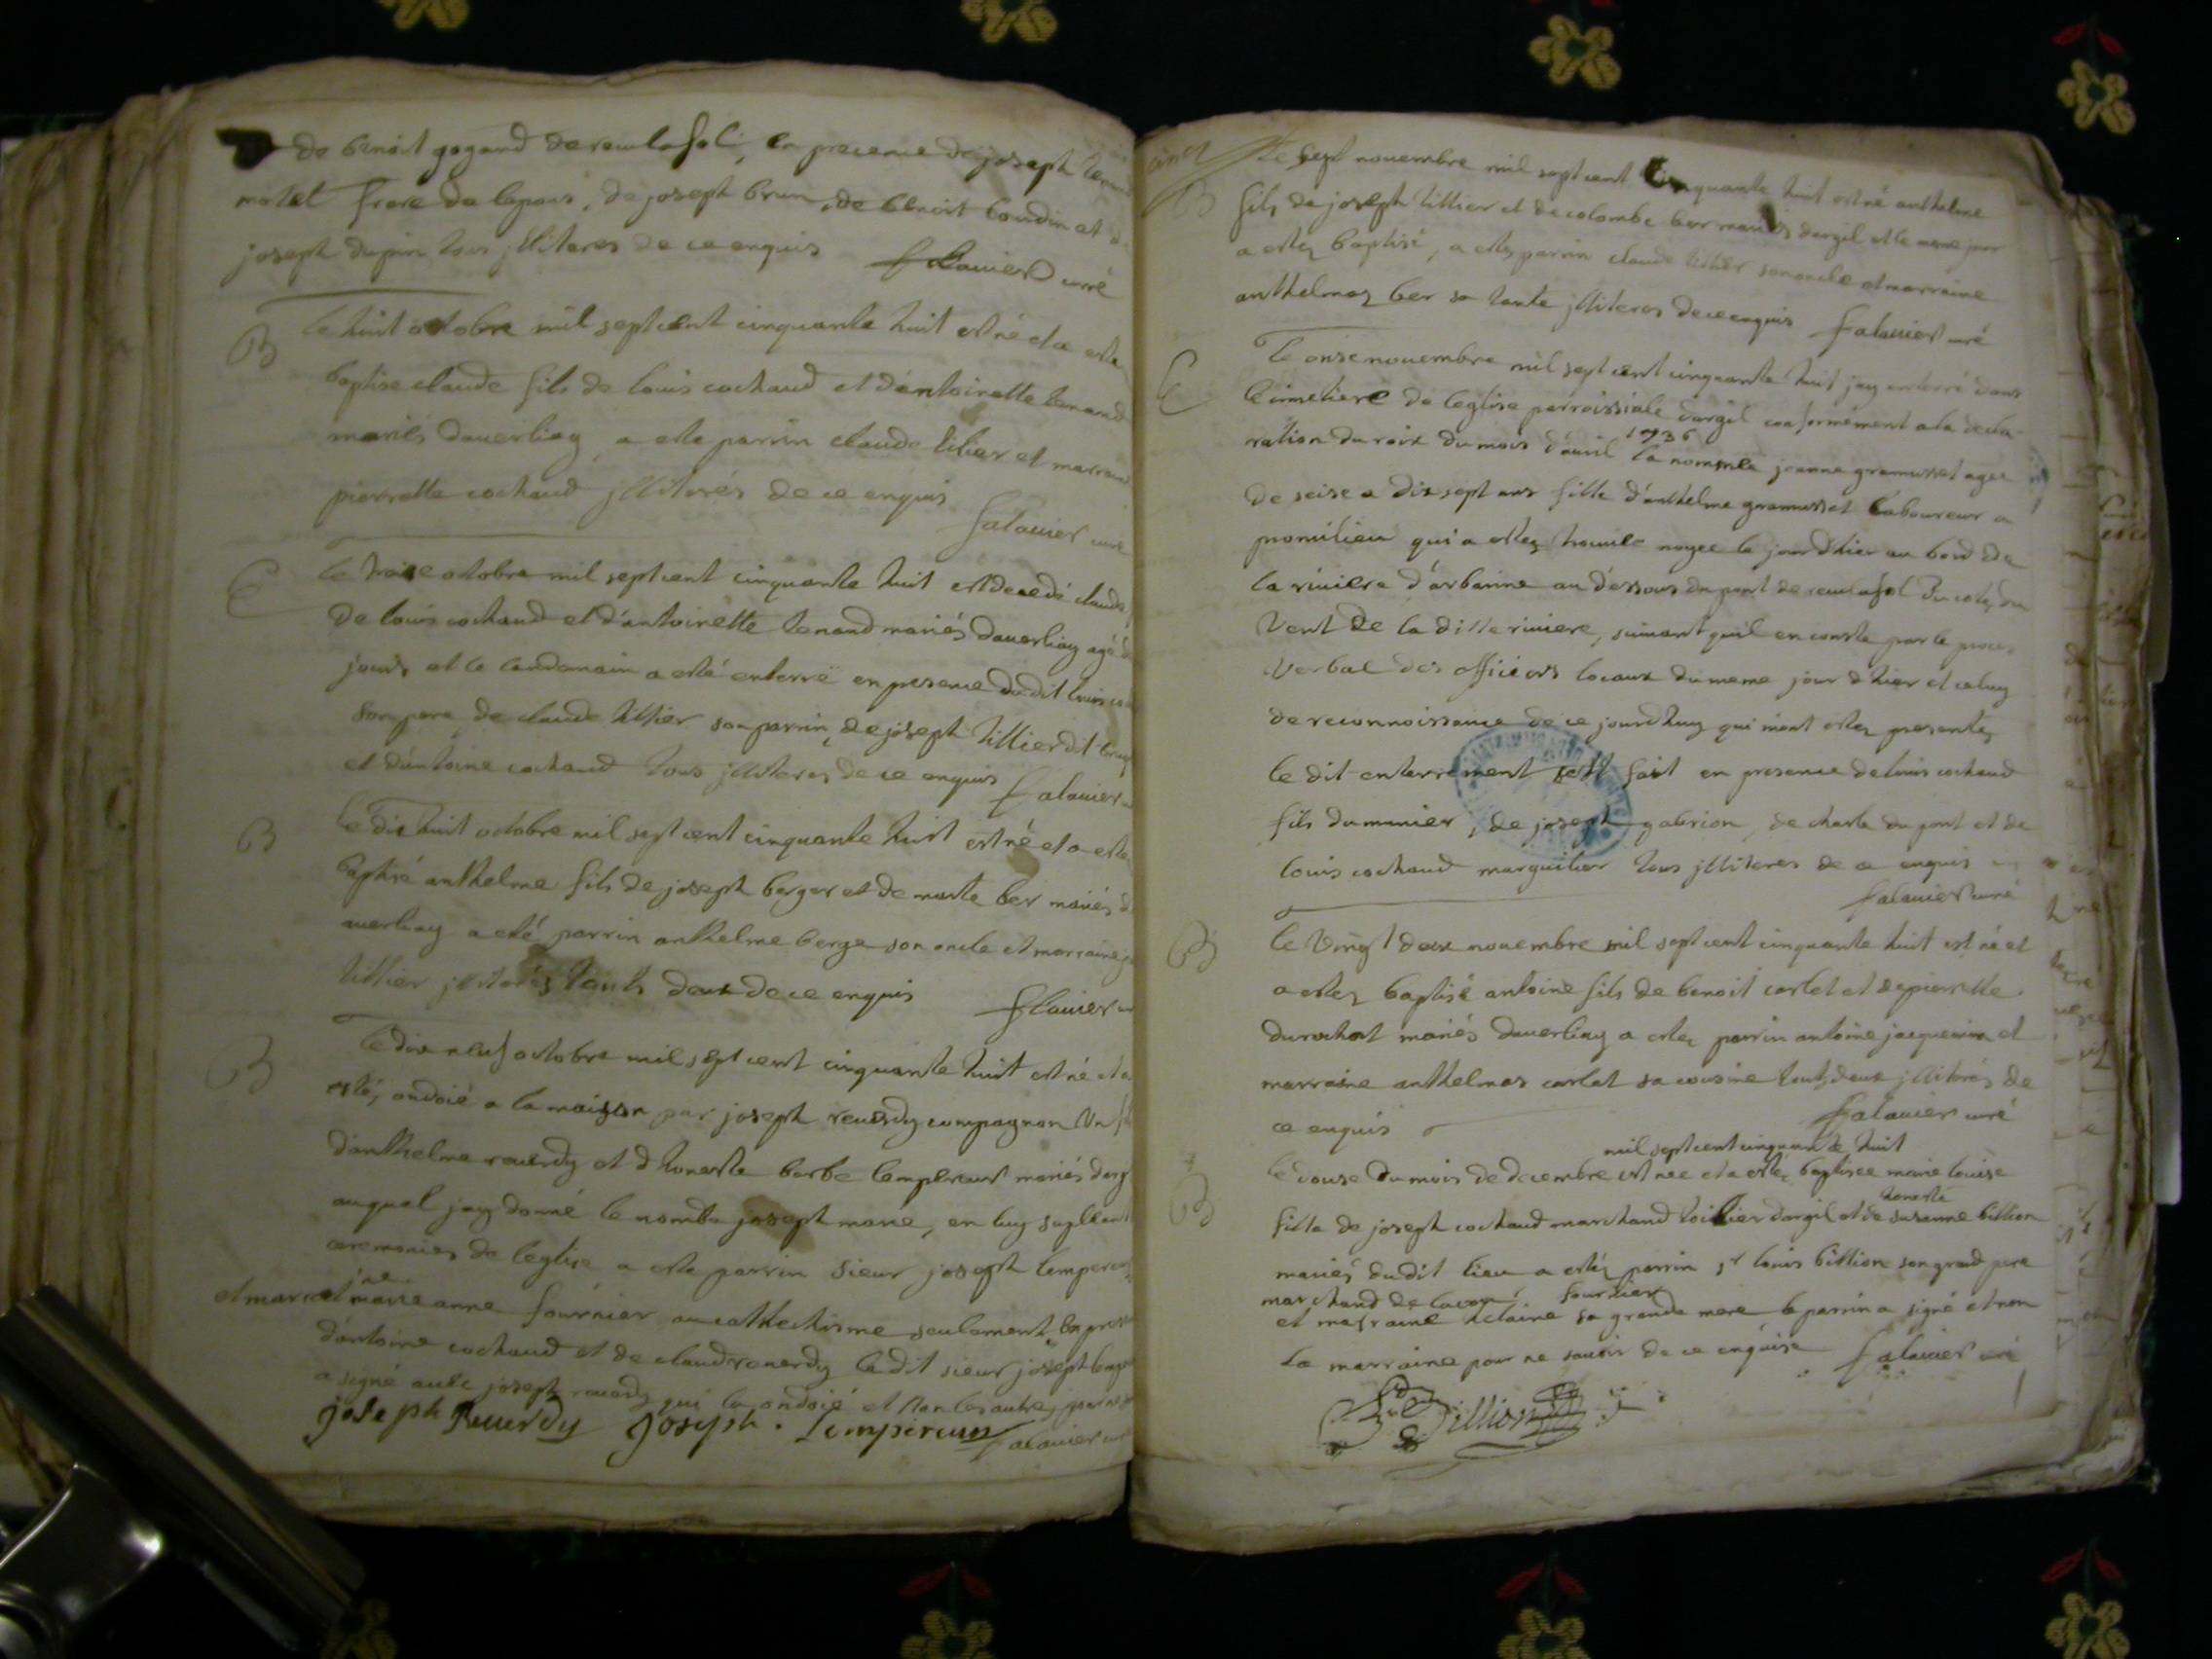 de benoit gogand de reculafol, en presence de joseph
motel frere de lepous, de joseph brun, de benoit boudin et
joseph dupin tous jlliteres de ce enquis falavier curé
B
le huit octobre mil sept cent cinquante huit est né et a esté
baptise claude fils de louis cochaud et d'antoinette tenand
mariés daverliay, a esté parrin claude tillier et marraine
pierrette cochaud jlliterés de ce enquis
falavier curé
E
le treise octobre mil sept cent cinquante huit est decedé claude
de louis cochaud et d'antoinette tenand mariés daverliay agé de
jours, et le landemain a esté enterré en presence dudit louis
son pere, de claude tillier son parrin, de joseph tillier dit
et d'antoine cochaud tous jlliteres de ce enquis falavier
B
le dix huit octobre mil sept cent cinquante huit est né et a esté
baptisé anthelme fils de joseph berger et de marte ber mariés d
averliay a eté parrin anthelme berge son oncle et marraine
tillier jlliterés touts deux de ce enquis falavier
B
le dix neuf octobre mil sept cent cinquante huit est né et a
estéz ondoié a la maison par joseph reverdy compagnon un
d'anthelme reverdy et d'honeste barbe lempereur mariés darg
auquel jay donné le nom de joseph marie, en luy supleant
ceremonies de leglise, a esté parrin sieur joseph lempereur
et marraine marie anne fournier au cathechisme seulement, en
d'antoine cochaud et de claud reverdy ledit sieur joseph
a signé avec joseph reverdy qui la ondoié et non les autres
joseph Reuerdy joseph . Lempereur falavier curé
B
le sept novembre mil sept cent cinquante huit est né anthelme
fils de joseph tillier et de colombe ber mariés dargil et le meme jour
a estez baptisé, a estez parrin claude tillier son oncle et marraine
anthelmaz ber sa tante jlliteres de ce enquis falavier curé
E
le onse novembre mil sept cent cinquante huit jay enterré dans
le cimetiere de leglise parroissiale dargil conformement a la decla-
1736
ration du roix du mois d'avril la nommée jeanne gramusset agee
de seise a dix sept ans fille d'anthelme gramusset laboureur a
promilieu qui a estez trouvée noyee le jour d'hier au bord de
la riviere d'arbarine au dessous du pont de reculafol du coté du
vent de la ditte riviere, suivant quil en conste par le proces
verbal des officiers locaux du meme jour d'hier et celuy
de reconnoissance de ce jourdhuy qui mont estez presentéz
le dit enterrement fait en presence de louis cochaud
fils du munier, de joseph gabrion, de charle du pont et de
louis cochaud marguilier tous jlliteres de ce enquis
falavier curé
B
le vingt deux novembre mil sept cent cinquante huit est né et
a estez baptisé antoine fils de benoit carlet et de pierrette
durochat mariés daverliay a estez parrin antoine jacquemin et
marraine anthelmas carlet sa cousine tout deux jlliterés de
ce enquis falavier curé
mil sept cent cinquante huit
B
le douse du mois de decembre est nee et a estez baptisee marie louise
honeste
fille de joseph cochaud marchand toillier dargil et de susanne billion
mariés dudit lieu a estéz parrin sr louis billion son grand pere
marchand de fournier
et marraine claine sa grande mere, le parrin a signé et non
la marraine pour ne savoir de ce enquise falavier curé
Billion